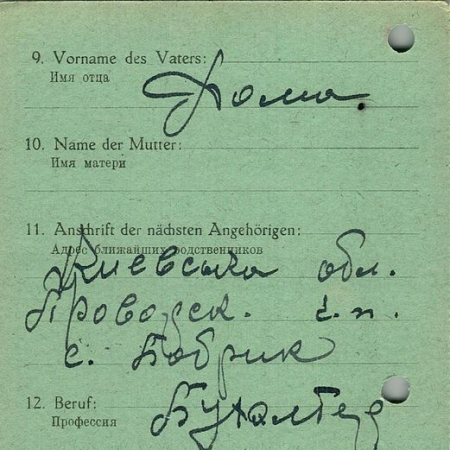 9. Vorname des Vaters:
Имя отца
Фома.
10. Name der Mutter:
Имя матери
11. Anschrift der nächsten Angehörigen:
Адрес ближайших родственников
Киевська обл.
с. Бобрик
12. Beruf:
Профессия